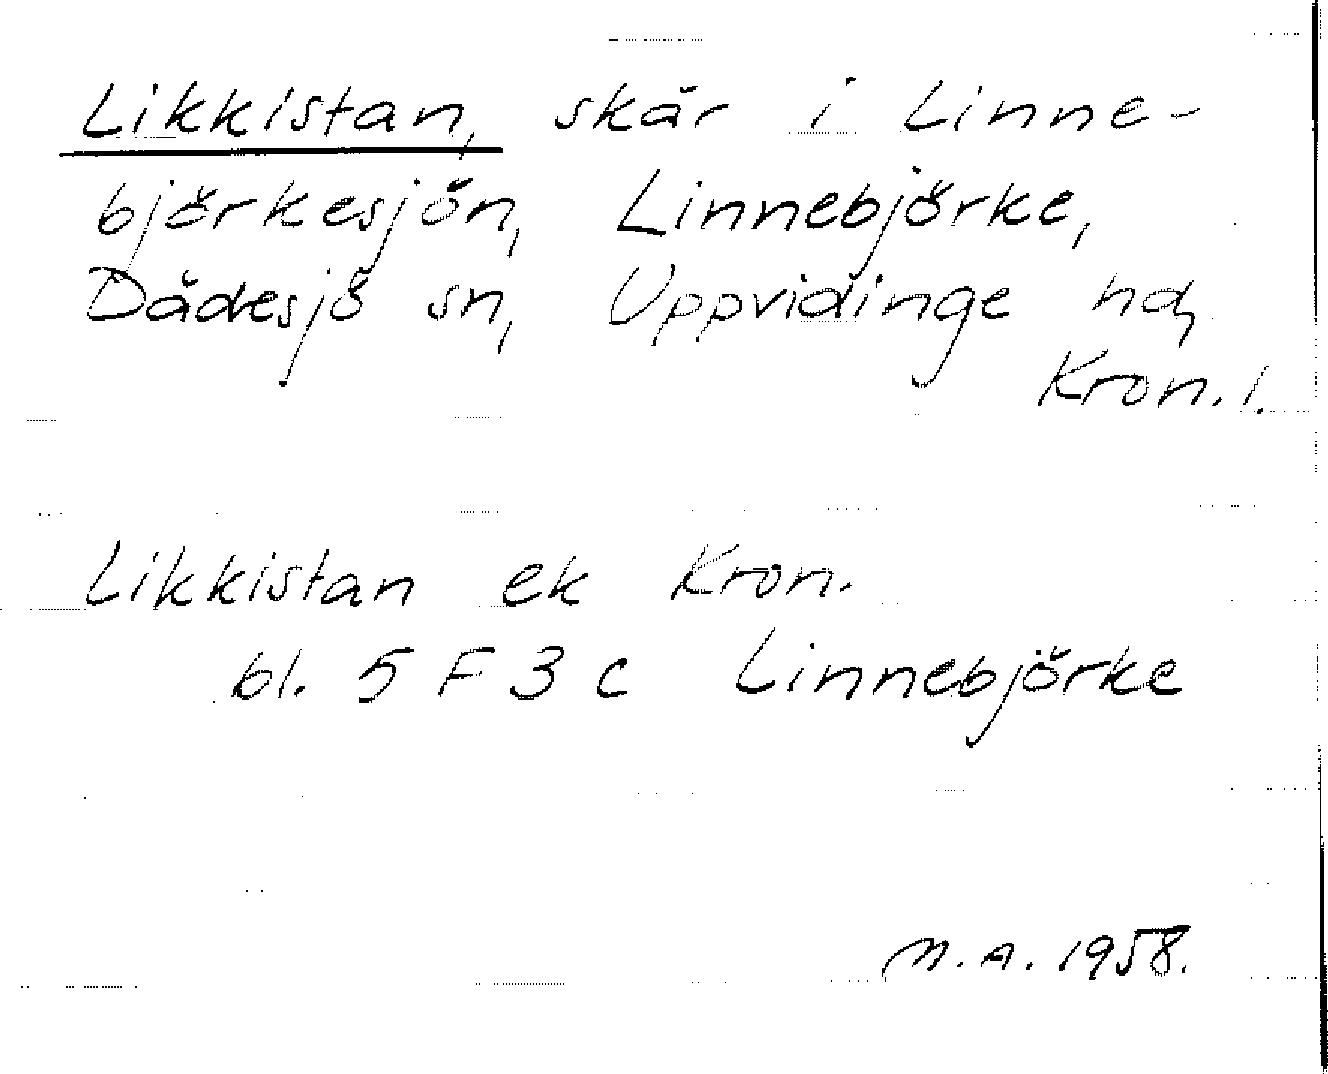 Likkistan, skär i Linne-
björkesjön, Linnebjörke,
Dädesjö sn, Uppvidinge hd,
Kron. l.
Likkistan ek Kron.
bl. 5 F 3 c Linnebjörke
M.A. 1958.